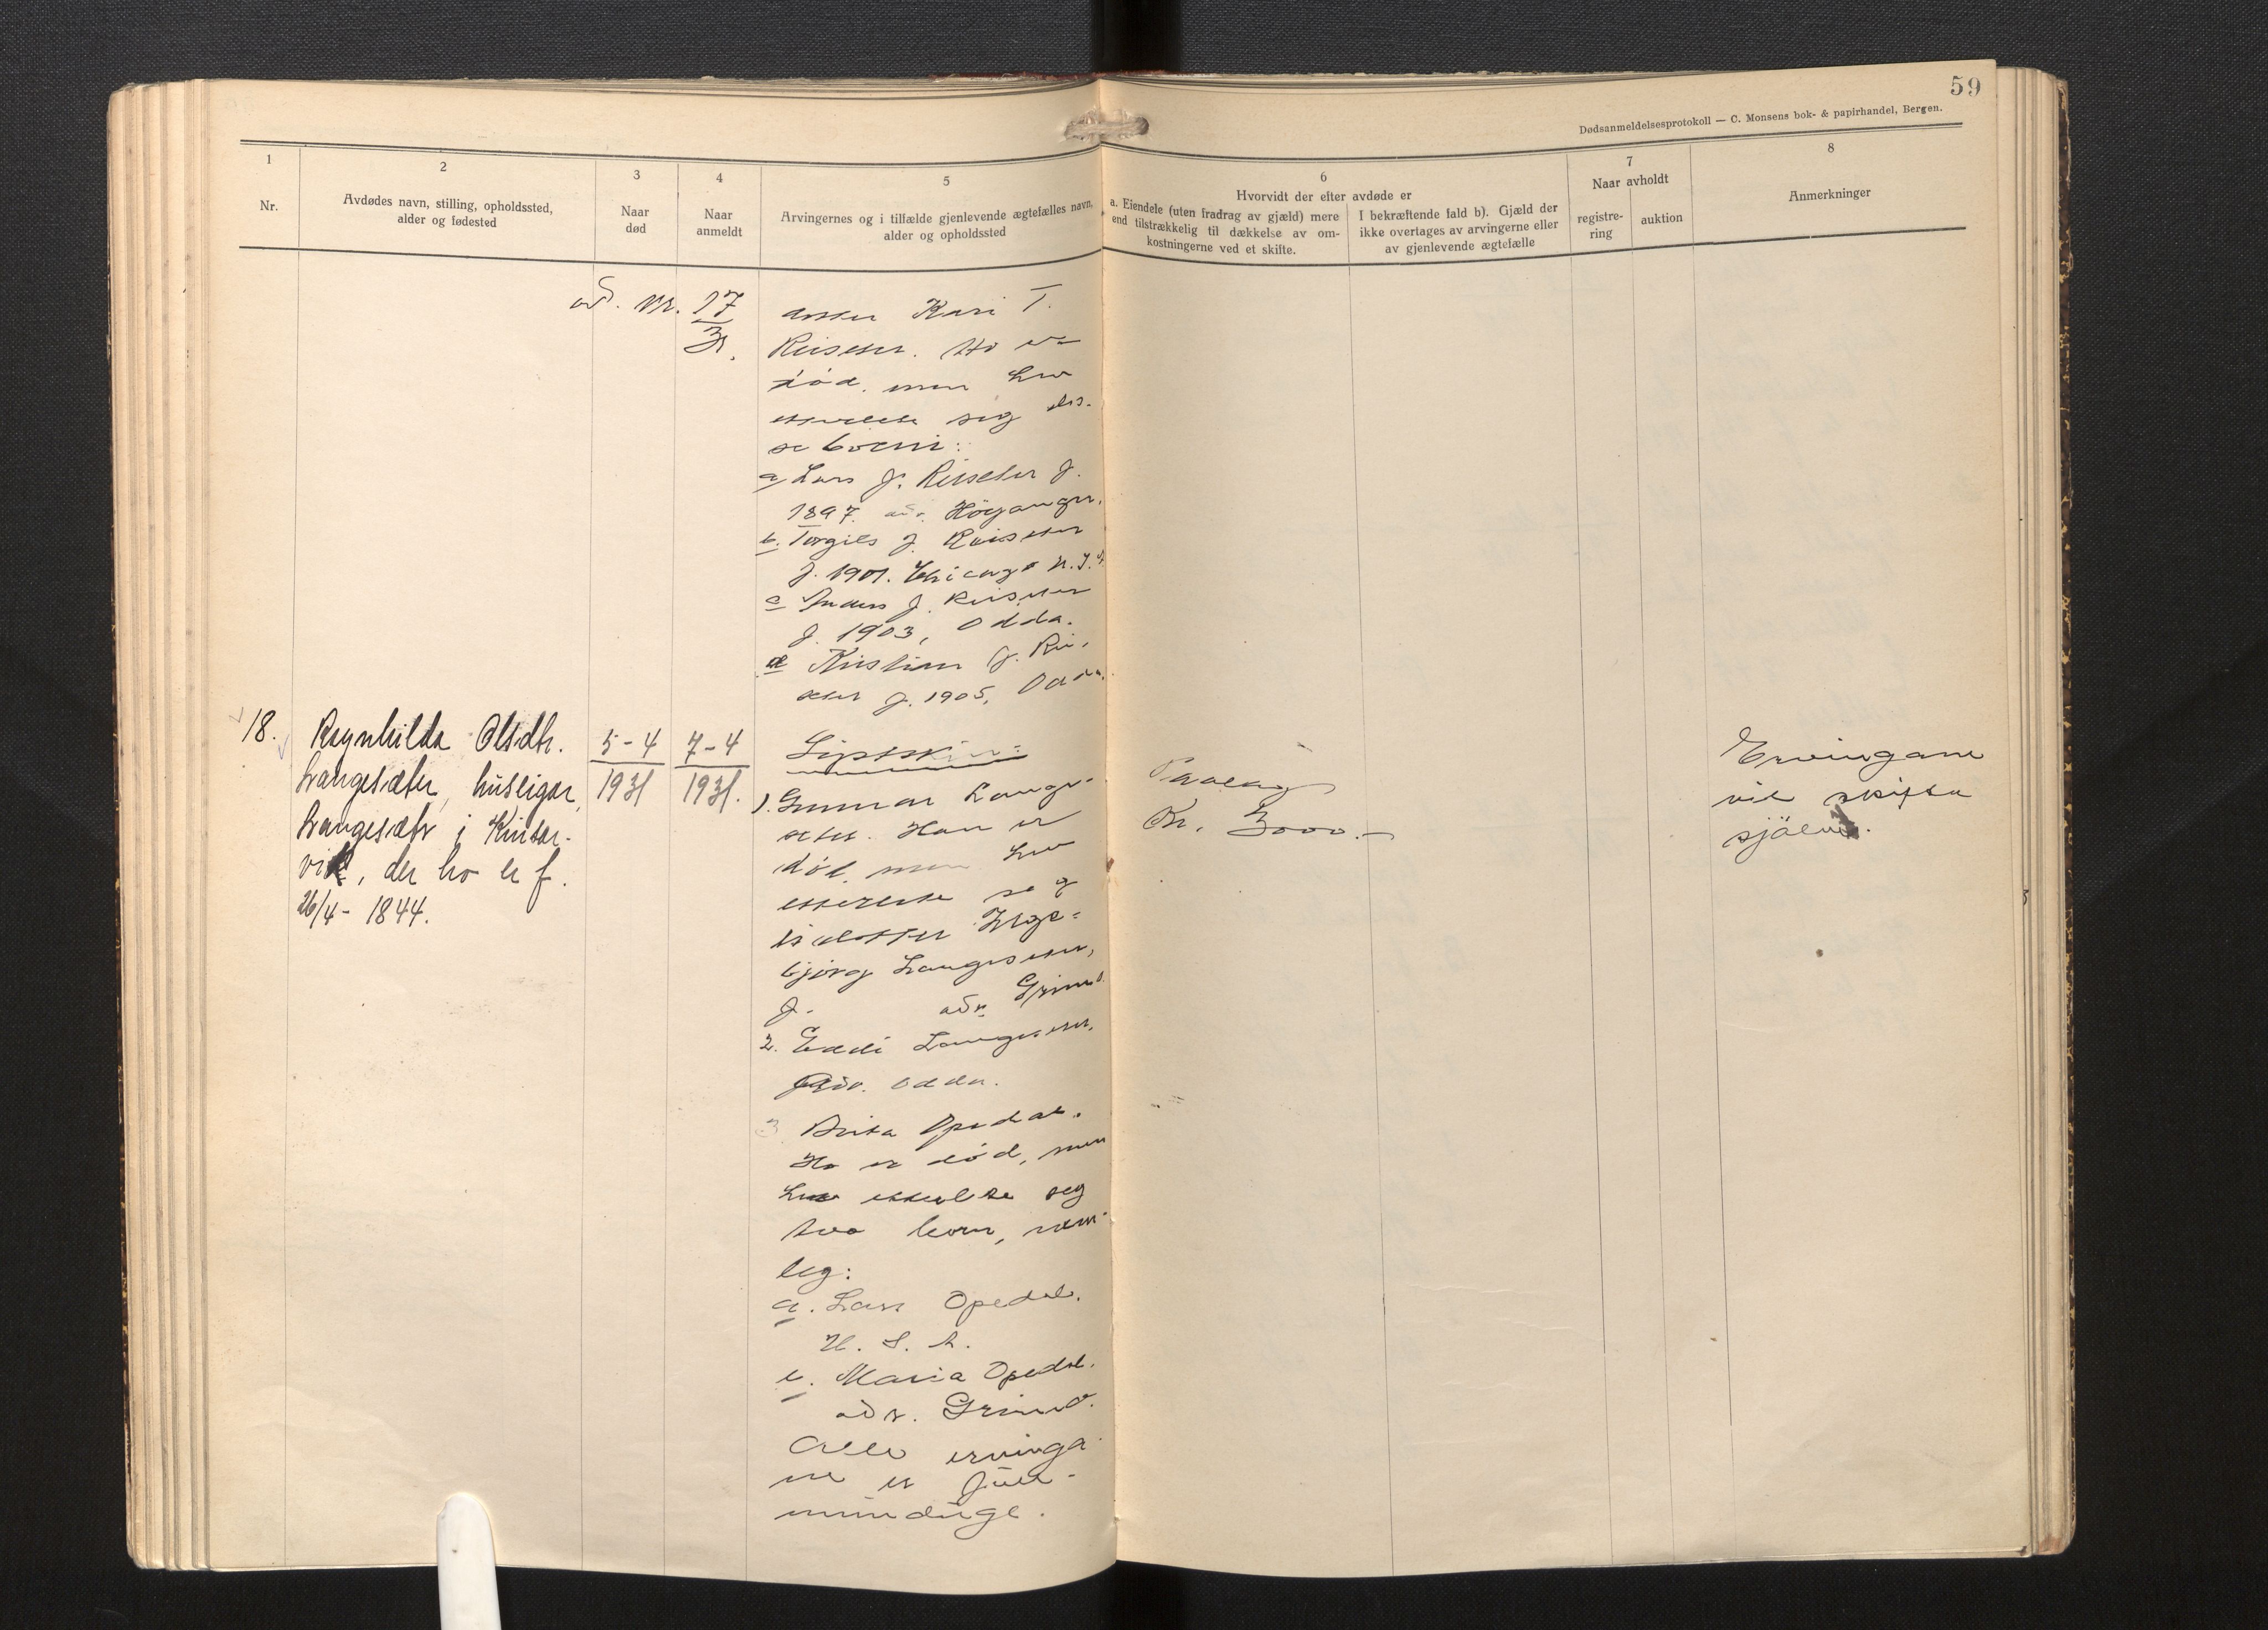 59
Dødsanmeldelsesprotokoll — C. Monsens bok- & papirhandel, Bergen.
1
Nr.
2
Avdødes navn, stilling, opholdssted,
alder og fødested
3
Naar
død
4
Naar
anmeldt
5
Arvingernes og i tilfælde gjenlevende ægtefælles navn,
alder og opholdssted
6
Hvorvidt der efter avdøde er
a. Eiendele (uten fradrag av gjæld) mere
end tilstrækkelig til dækkelse av om-
kostningerne ved et skifte.
I bekræftende fald b). Gjæld der
ikke overtages av arvingerne eller
av gjenlevende ægtefælle
7
Naar avholdt
registre-
ring
auktion
8
Anmerkninger
ad. nr. 17
31.
dotter Kari T.
Reisæter. Ho er
död, men
sig des-
se born:
a Lars J. Reisæter f.
1897. adr. Höyanger.
b. Torgils J. Reisæter
f. 1901. Chicago
c Anders J. Reisæter
f. 1903, Odda.
d Kristian J. Rei-
sæter f. 1905, Odda.
18.
Ragnhilda Olsdtr.
Langesæter, husligar,
Langesætr i Kinsar-
vik, der ho er f.
26/4 - 1844.
5-4
1931
7-4
1931.
Syskin:
1. Gunnar Lange-
seter. Han er
död, men
etterlete seg
ei dotter Inge-
björg Langeseter,
f. adr. Grimo
2. Eddi Langeseter.
adr. Odda.
3 Brita Opedal.
Ho er död, men
seg
tvo born, nem-
leg:
a. Lars Opedal.
U. S. A.
b. Maria Opedal.
adr. Grimo.
Alle ervinga-
ne er full-
mündige.
Paalag
Kr. 3000.-
Ervingane
vil skifta
sjölve.